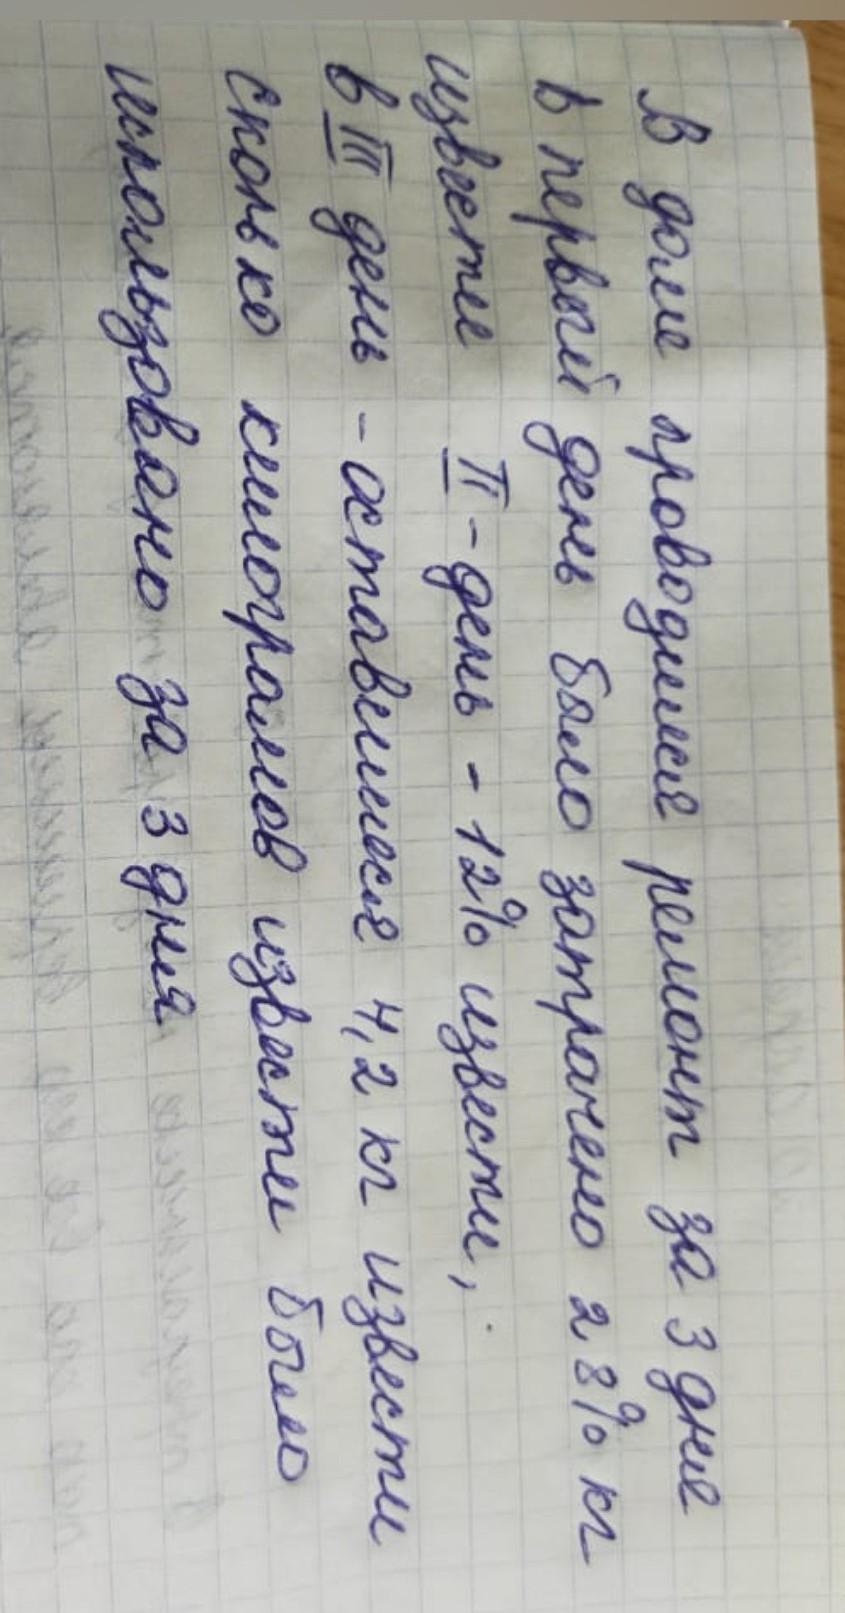 В доме проводился ремонт за 3 дня
в первый день было затрачено 28% кг
извести II - день - 12% извести,
в III день - оставшиеся 4,2 кг извести
сколько килограмов извести было
использовано за 3 дня